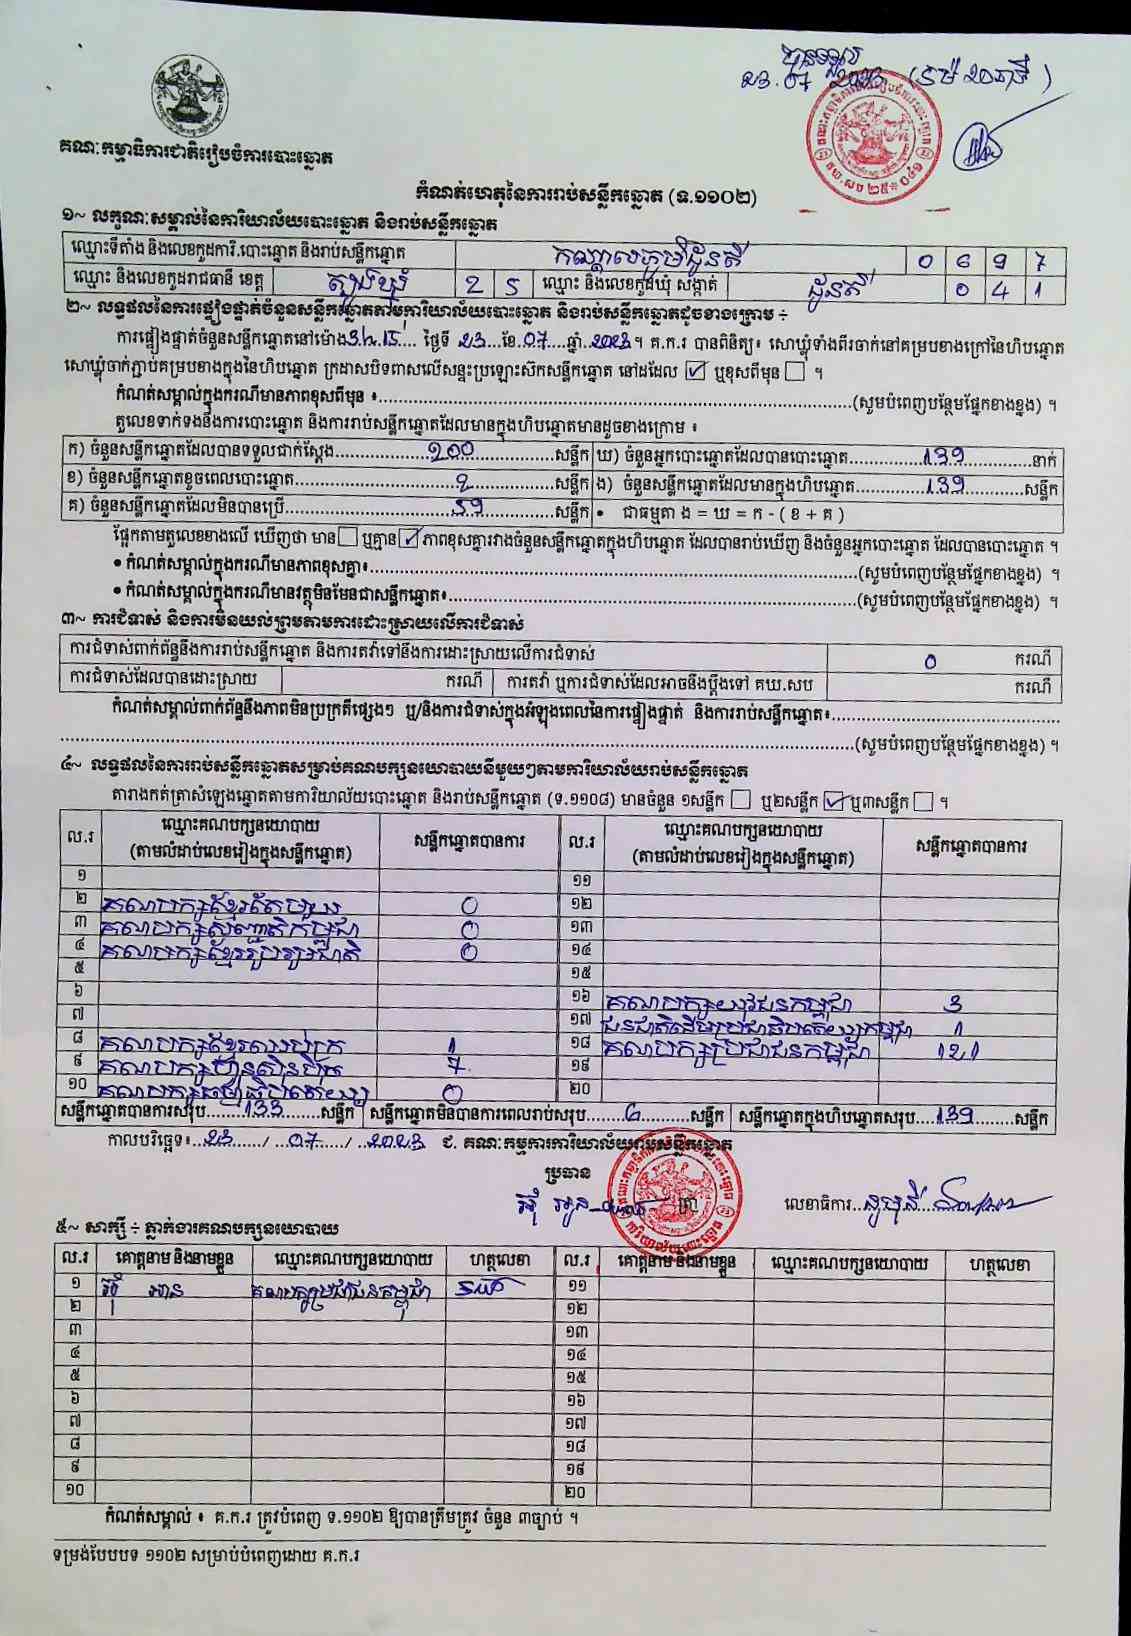 បានទទួល
23.07 2023 (ទម៉ ២០នាទី)
គណៈកម្មាធិការជាតិរៀបចំការបោះឆ្នោត
កំណត់ហេតុនៃការរាប់សន្លឹកឆ្នោត (ទ.១១០២)
១~ លក្ខណៈសម្គាល់នៃការិយាល័យបោះឆ្នោត និងរាប់សន្លឹកឆ្នោត
ឈ្មោះទីតាំង និងលេខកូដការិ.បោះឆ្នោត និងរាប់សន្លឹកឆ្នោត កណ្តាលភូមិដូនតី 0 6 9 7
ឈ្មោះ និងលេខកូដរាជធានី ខេត្ត ត្បូងឃ្មុំ 2 5 ឈ្មោះ និងលេខកូដឃុំ សង្កាត់ ដូនតី 0 4 1
២~ លទ្ធផលនៃការផ្ទៀងផ្ទាត់ចំនួនសន្លឹកឆ្នោតតាមការិយាល័យបោះឆ្នោត និងរាប់សន្លឹកឆ្នោតដូចខាងក្រោម ÷
ការផ្ទៀងផ្ទាត់ចំនួនសន្លឹកឆ្នោតនៅម៉ោង 3h.15' ថ្ងៃទី 23 ខែ 07 ឆ្នាំ 2023 ។ គ.ក.រ បានពិនិត្យ៖ សោឃ្លុំទាំងពីរចាក់នៅគម្របខាងក្រៅនៃហិបឆ្នោត
សោឃ្លុំចាក់ភ្ជាប់គម្របខាងក្នុងនៃហិបឆ្នោត ក្រដាសបិទពាសលើសន្ទះប្រឡោះសឹកសន្លឹកឆ្នោត នៅដដែល ☑ ឬខុសពីមុន ☐ ។
កំណត់សម្គាល់ក្នុងករណីមានភាពខុសពីមុន ៖ (សូមបំពេញបន្ថែមផ្នែកខាងខ្នង) ។
តួលេខទាក់ទងនឹងការបោះឆ្នោត និងការរាប់សន្លឹកឆ្នោតដែលមានក្នុងហិបឆ្នោតមានដូចខាងក្រោម ៖
ក) ចំនួនសន្លឹកឆ្នោតដែលបានទទួលជាក់ស្តែង 200 សន្លឹក ឃ) ចំនួនអ្នកបោះឆ្នោតដែលបានបោះឆ្នោត 139 នាក់
ខ) ចំនួនសន្លឹកឆ្នោតខូចពេលបោះឆ្នោត 2 សន្លឹក ង) ចំនួនសន្លឹកឆ្នោតដែលមានក្នុងហិបឆ្នោត 139 សន្លឹក
គ) ចំនួនសន្លឹកឆ្នោតដែលមិនបានប្រើ 59 សន្លឹក • ជាធម្មតា ង = ឃ = ក - ( ខ + គ )
ផ្អែកតាមតួលេខខាងលើ ឃើញថា មាន ☐ ឬគ្មាន ☑ ភាពខុសគ្នារវាងចំនួនសន្លឹកឆ្នោតក្នុងហិបឆ្នោត ដែលបានរាប់ឃើញ និងចំនួនអ្នកបោះឆ្នោត ដែលបានបោះឆ្នោត ។
• កំណត់សម្គាល់ក្នុងករណីមានភាពខុសគ្នា៖ (សូមបំពេញបន្ថែមផ្នែកខាងខ្នង) ។
• កំណត់សម្គាល់ក្នុងករណីមានវត្ថុមិនមែនជាសន្លឹកឆ្នោត៖ (សូមបំពេញបន្ថែមផ្នែកខាងខ្នង) ។
៣~ ការជំទាស់ និងការមិនយល់ព្រមតាមការដោះស្រាយលើការជំទាស់
ការជំទាស់ពាក់ព័ន្ធនឹងការរាប់សន្លឹកឆ្នោត និងការតវ៉ាទៅនឹងការដោះស្រាយលើការជំទាស់ 0 ករណី
ការជំទាស់ដែលបានដោះស្រាយ ករណី ការតវ៉ា ឬការជំទាស់ដែលអាចនឹងប្តឹងទៅ គឃ.សប ករណី
កំណត់សម្គាល់ពាក់ព័ន្ធនឹងភាពមិនប្រក្រតីផ្សេងៗ ឬ/និងការជំទាស់ក្នុងអំឡុងពេលនៃការផ្ទៀងផ្ទាត់ និងការរាប់សន្លឹកឆ្នោត៖
(សូមបំពេញបន្ថែមផ្នែកខាងខ្នង) ។
៤~ លទ្ធផលនៃការរាប់សន្លឹកឆ្នោតសម្រាប់គណបក្សនយោបាយនីមួយៗតាមការិយាល័យរាប់សន្លឹកឆ្នោត
តារាងកត់ត្រាសំឡេងឆ្នោតតាមការិយាល័យបោះឆ្នោត និងរាប់សន្លឹកឆ្នោត (ទ.១១០៨) មានចំនួន ១សន្លឹក ☐ ឬ២សន្លឹក ☑ ឬ៣សន្លឹក ☐ ។
ល.រ ឈ្មោះគណបក្សនយោបាយ (តាមលំដាប់លេខរៀងក្នុងសន្លឹកឆ្នោត) សន្លឹកឆ្នោតបានការ ល.រ ឈ្មោះគណបក្សនយោបាយ (តាមលំដាប់លេខរៀងក្នុងសន្លឹកឆ្នោត) សន្លឹកឆ្នោតបានការ
១ ១១
២ គណបក្សខ្មែរតែមួយ 0 ១២
៣ គណបក្សសញ្ជាតិកម្ពុជា 0 ១៣
៤ គណបក្សខ្មែររួបរួមជាតិ 0 ១៤
៥ ១៥
៦ ១៦ គណបក្សយុវជនកម្ពុជា 3
៧ ១៧ ជនជាតិដើមប្រជាធិបតេយ្យកម្ពុជា 1
៨ គណបក្សខ្មែរឈប់ក្រ 1 ១៨ គណបក្សប្រជាជនកម្ពុជា 121
៩ គណបក្សហ៊្វុនស៊ិនប៉ិច 7 ១៩
១០ គណបក្សធម្មាធិបតេយ្យ 0 ២០
សន្លឹកឆ្នោតបានការសរុប 133 សន្លឹក សន្លឹកឆ្នោតមិនបានការពេលរាប់សរុប 6 សន្លឹក សន្លឹកឆ្នោតក្នុងហិបឆ្នោតសរុប 139 សន្លឹក
កាលបរិច្ឆេទ៖ 23 / 07 / 2023 ជ. គណៈកម្មការការិយាល័យរាប់សន្លឹកឆ្នោត
ប្រធាន
លេខាធិការ
៥~ សាក្សី ÷ ភ្នាក់ងារគណបក្សនយោបាយ
ល.រ គោត្តនាម និងនាមខ្លួន ឈ្មោះគណបក្សនយោបាយ ហត្ថលេខា ល.រ គោត្តនាម និងនាមខ្លួន ឈ្មោះគណបក្សនយោបាយ ហត្ថលេខា
១ គណបក្សប្រជាជនកម្ពុជា ១១
២ ១២
៣ ១៣
៤ ១៤
៥ ១៥
៦ ១៦
៧ ១៧
៨ ១៨
៩ ១៩
១០ ២០
កំណត់សម្គាល់ ៖ គ.ក.រ ត្រូវបំពេញ ទ.១១០២ ឱ្យបានត្រឹមត្រូវ ចំនួន ៣ច្បាប់ ។
ទម្រង់បែបបទ ១១០២ សម្រាប់បំពេញដោយ គ.ក.រ